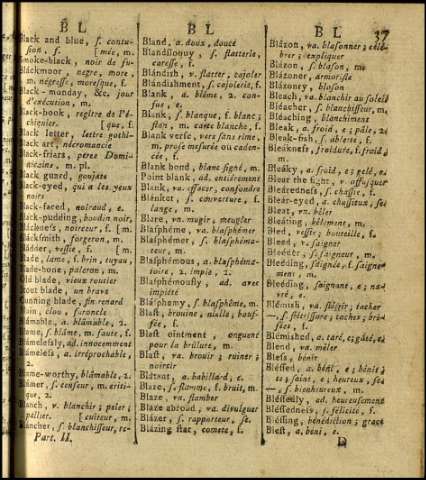 B L
B L
B L
37
Black and blue, s. contu-
sion, f. [méc, m.
Smoke-black, noir de fu-
Bláckmoor, negre, more,
m. négresse f. more, f.
Black-monday, &c. jour
d'exécution, m.
Black-book, registre de l'é-
chiquier. [que, f.
Black letter, lettre gothi-
Black art, nécromancie
Black-friars, peres Domi-
nicains, m. pl.
Black guard, goujate
Black-eyed, qui a les yeux
noirs
Black-faced, noiraud, e.
Black-pudding, boudin noir,
Bláckness, noirceur, f. [m.
Bláckſmith, forgeron, m.
Bládder, vessie, f. [m.
Blade, lame, f. brin, tuyau,
Blade-bone, paleron, m.
Old blade, vieux routier
Stout blade, un brave
Cunning blade, fin renard
Blain, clou, furoncle
Blámable, a. blâmable, 2.
Blame, s. blâme, m. faute, f.
Blámelesly, ad. innocemment
Blámeless, a. irréprochable,
2.
Blame-worthy, blâmable, 2.
Blámer, s. censeur, m. criti-
que, 2.
Blanch, v. blanchir; peler;
pallier. [cuiteur, m.
Blancher, s. blanchisseur, re-
Part. II.
Bland, a. doux, douce
Blandíloquy, s. flatterie,
caresse, f.
Blándish, v. flatter, cajoler
Blándishment, s. cajolerie, f.
Blank, a. blême, 2. con-
fus, e.
Blank, s. blanque, f. blanc;
flan, m. carte blanche, f.
Blank verse, vers sans rime,
m. prose mesurée ou caden-
cée, f.
Blank bond, blanc signé, m.
Point blank, ad. entiérement
Blank, va. effacer, confondre
Blánket, s. couverture, f.
lange, m.
Blare, va. mugir, meugler
Blasphéme, va. blasphémer
Blasphémer, s. blasphéma-
teur, m.
Blasphémous, a. blasphéma-
toire, 2. impie, 2.
Blasphémously, ad. avec
impiété
Blásphemy, s. blasphême, m.
Blast, brouine, nielle; bouf-
fée, f.
Blast ointment, onguent
pour la brûlure, m.
Blast, va. brouir; ruiner;
noircir
Blátant, a. babillard, e.
Blaze, s. flamme, f. bruit, m.
Blaze, va. flamber
Blaze abroad, va. divulguer
Blázer, s. rapporteur, se.
Blázing star, comete, f.
Blázon, va. blasonner; célé-
brer; expliquer
Blázon, s. blason, m.
Blázoner, armoriste
Blázonry, blason
Bleach, va. blanchir au soleil
Bléacher, s. blanchisseur, m.
Bléaching, blanchiment
Bleak, a. froid, e; pâle, 2.
Bleak-fish, s. ablette, f.
Bléakness, froidure, f. froid,
m.
Bléaky, a. froid, e; gelé, e.
Blear the sight, v. offusquer
Bléaredness, s. chassie, f.
Blear-eyed, a. chassieux, se.
Bleat, vn. bêler
Bléating, bêlement, m.
Bleb, vessie; bouteille, f.
Bleed, v. saigner
Bléeder, s. saigneur, m.
Bléeding, saignée, f. saigne-
ment, m.
Bléeding, saignant, e; na-
vré, e.
Blémish, va. flétrir; tacher
—, s. flétrissure; tache; bré-
che, f.
Blémished, a. taré, e; gâté, e.
Blend, va. mêler
Bless, bénir
Bléssed, a. béni, e; béni-
te; saint, e; heureux, se.
—, s. bienheureux, m.
Bléssedly, ad. heureusement
Bléssedness, s. félicité, f.
Bléssing, bénédiction; grace
Blest, a. béni, e.
D